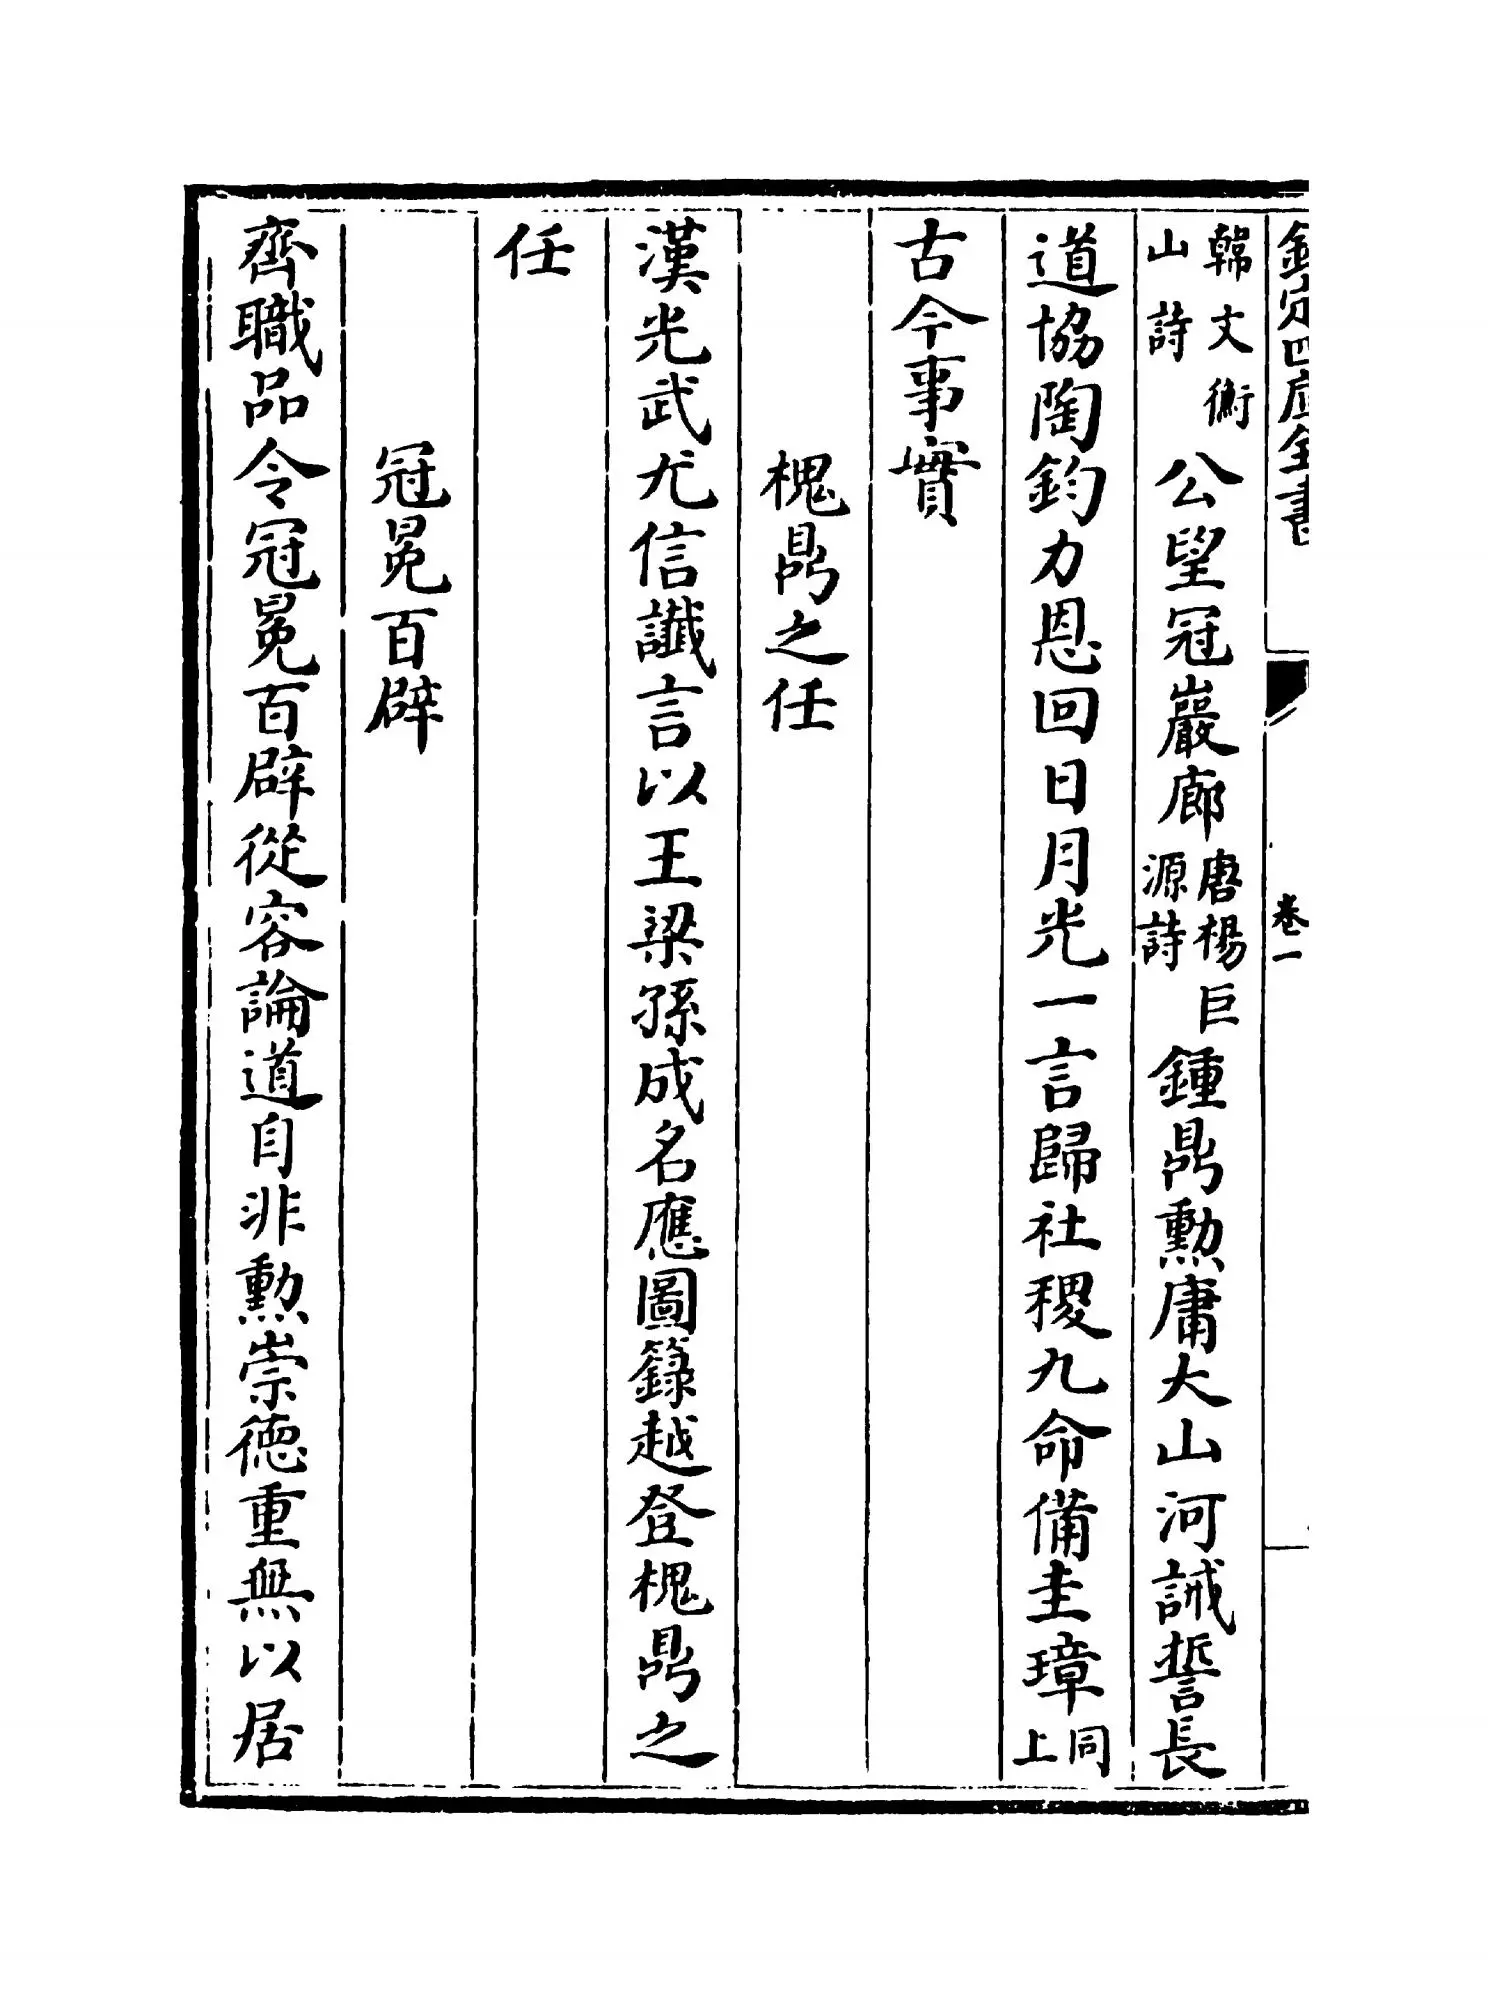 欽定四庫全書
卷一
韓文衡山詩公望冠巖廊唐楊巨源詩鍾鼎勲庸大山河誡誓長
道協陶鈞力恩回日月光一言歸社稷九命備圭璋同上
古今事實
槐鼎之任
漢光武尤信讖言以王梁孫成名應圖籙越登槐鼎之
任
冠冕百辟
齊職品令冠冕百辟從容論道自非勲崇德重無以居